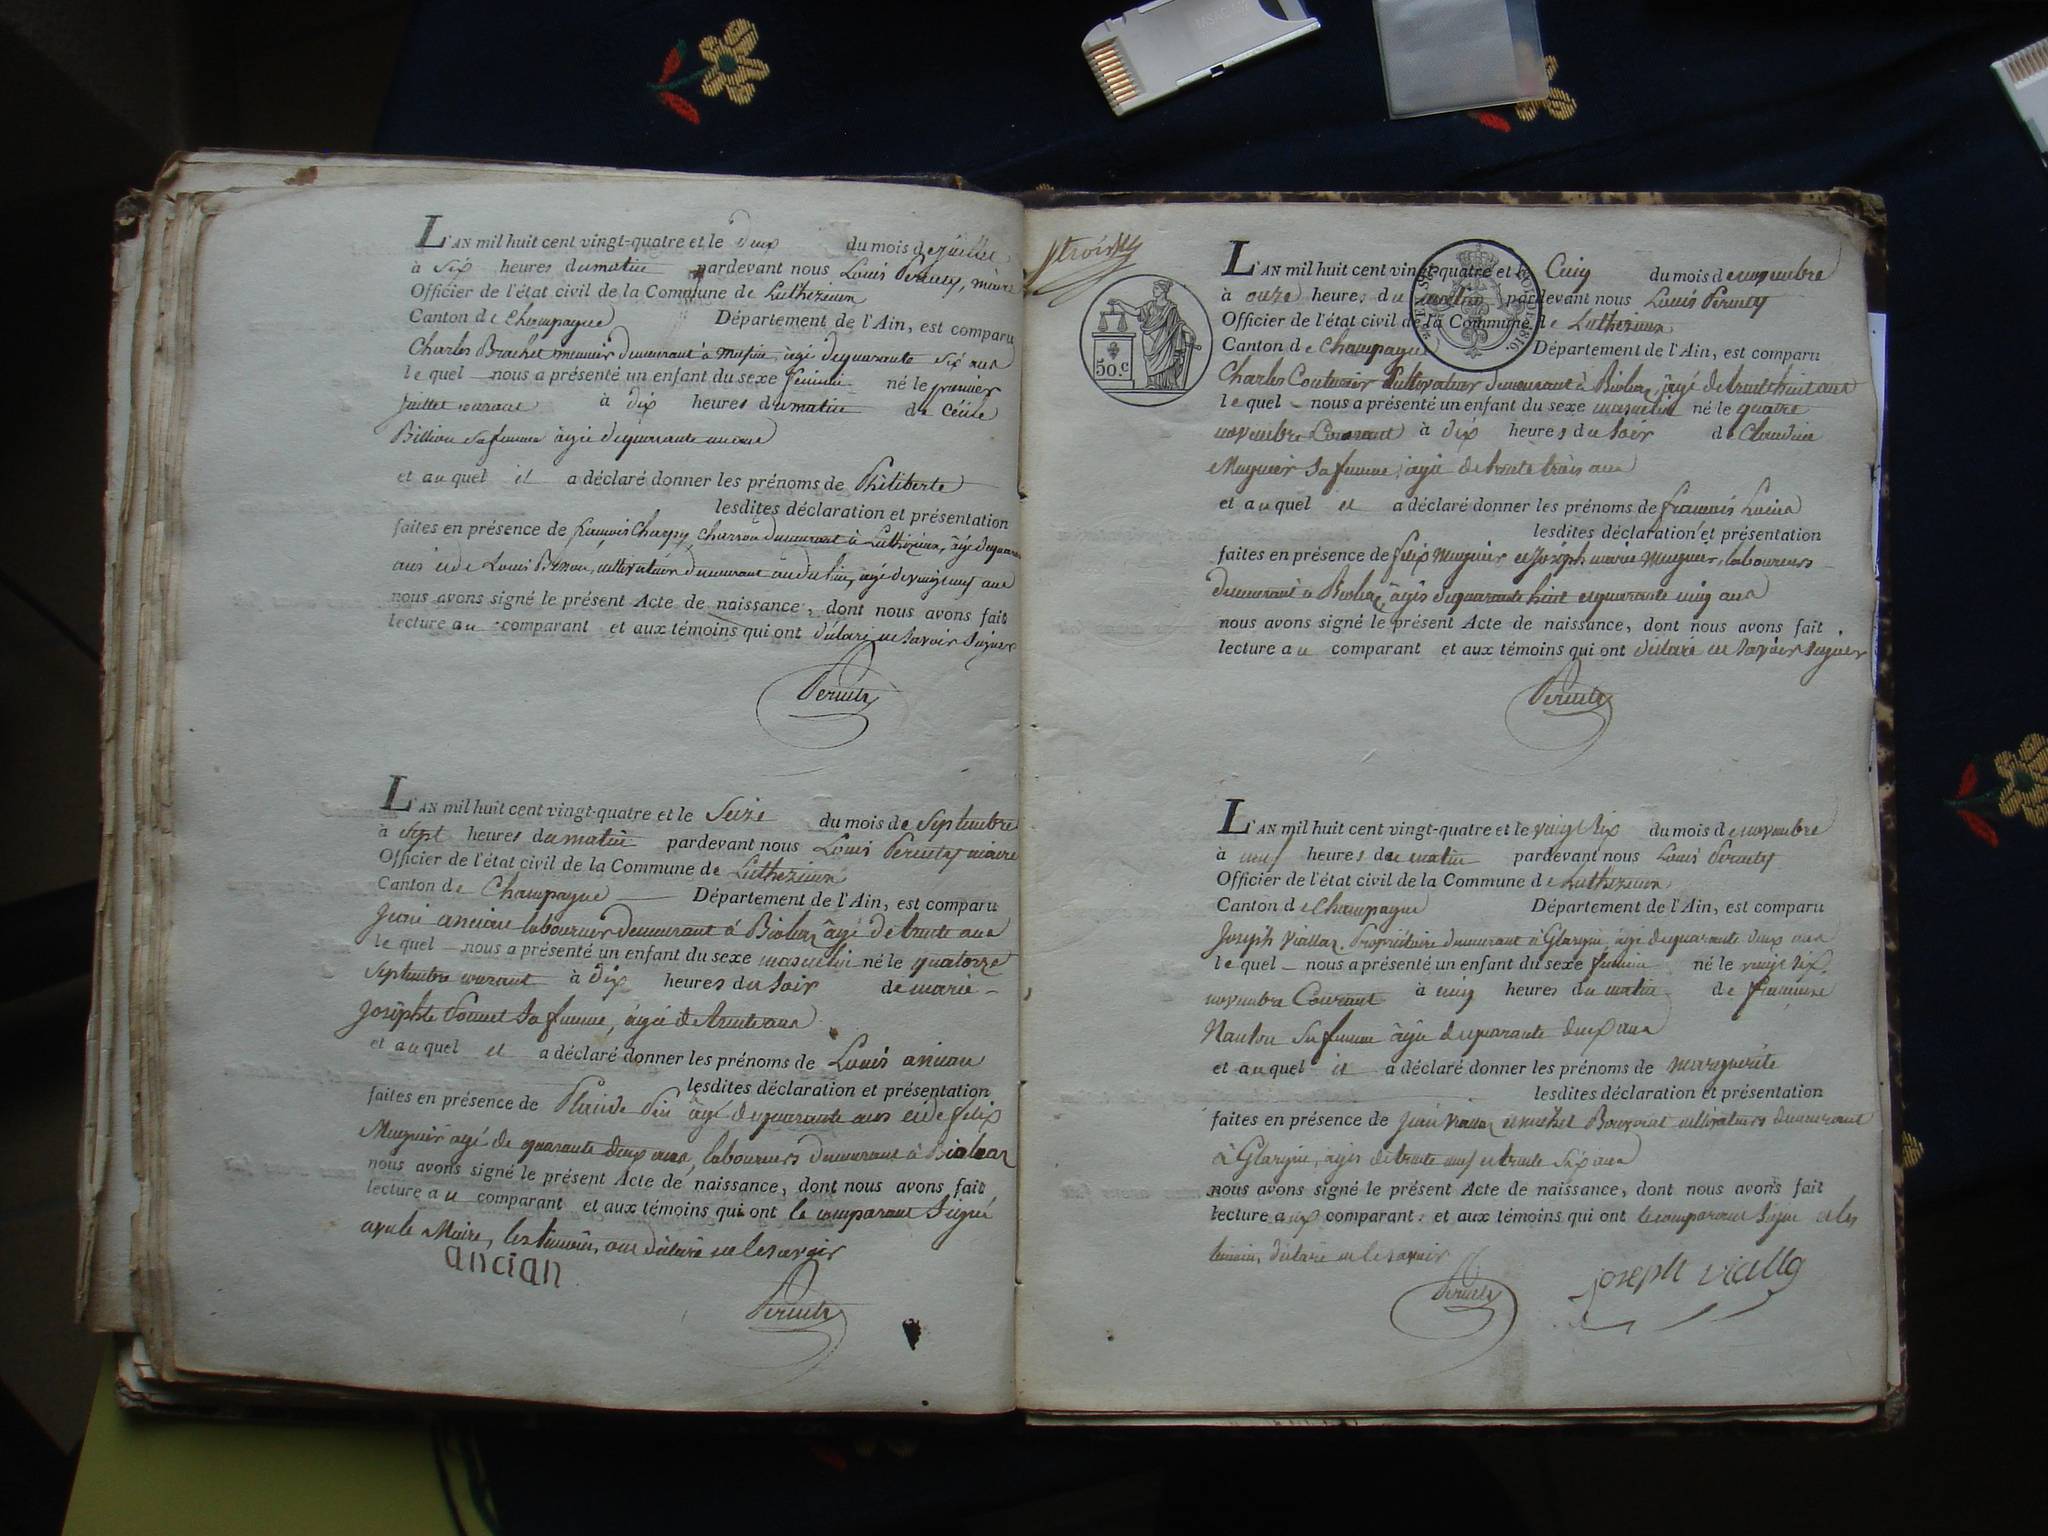 L'AN mil huit cent vingt-quatre et le deux du mois de juillet
à six heures du matin pardevant nous Louis Peructy, maire
Officier de l'état civil de la Commune de Luthezieux
Canton de Champagne Département de l'Ain, est comparu
Charles Brachet meunier demeurant à âgé de quarante six ans
le quel nous a présenté un enfant du sexe feminin né le premier
juillet courant à dix heures du matin de
Billion sa femme âgée de quarante un ans
et au quel il a déclaré donner les prénoms de Philiberte
lesdites déclaration et présentation
faites en présence de françois Charpy, charron demeurant à Luthezieux, âgé de quarante
ans et de Louis Bisson, cultivateur demeurant audit lieu, agé de vingt neuf ans
nous avons signé le présent Acte de naissance, dont nous avons fait
lecture au comparant et aux témoins qui ont déclaré ne savoir signer
L'AN mil huit cent vingt-quatre et le Seize du mois de Septembre
à sept heures du matin pardevant nous Louis maire
Officier de l'état civil de la Commune de Luthezieux
Canton de Champagne Département de l'Ain, est comparu
ancian laboureur demeurant à Bioleaz âgé de trente ans
le quel nous a présenté un enfant du sexe masculin né le quatorze
Septembre courant à dix heures du soir de marie
Josephte sa femme, agée de trente ans
et au quel il a déclaré donner les prénoms de Louis ancian
lesdites déclaration et présentation
faites en présence de âgé de quarante ans et de felix
Muynier agé de quarante deux ans, laboureurs demeurant à Bioleaz
nous avons signé le présent Acte de naissance, dont nous avons fait
lecture au comparant et aux témoins qui ont le comparant signé
avec le Maire, les témoins, ont déclaré ne le savoir
ancian
50.c
L'AN mil huit cent vingt-quatre et le Cinq du mois de novembre
à onze heures du matin pardevant nous Louis
Officier de l'état civil de la Commune de Luthezieux
Canton de Champagne Département de l'Ain, est comparu
Charles Couturier Cultivateur demeurant à Bioleaz, âgé de trente huit ans
le quel nous a présenté un enfant du sexe masculin né le quatre
novembre Courant à dix heures du soir de Claudine
Muynier sa femme, agée de trente trois ans
et au quel il a déclaré donner les prénoms de françois
lesdites déclaration et présentation
faites en présence de felix Muynier et Joseph marie Muynier, laboureurs
demeurant à Bioleaz, âgés de quarante huit et quarante cinq ans
nous avons signé le présent Acte de naissance, dont nous avons fait
lecture au comparant et aux témoins qui ont déclaré ne savoir signer
L'AN mil huit cent vingt-quatre et le vingt six du mois de novembre
à neuf heures du matin pardevant nous Louis
Officier de l'état civil de la Commune de Luthezieux
Canton de Champagne Département de l'Ain, est comparu
Joseph Viallaz, Propriétaire demeurant à âgé de quarante deux ans
le quel nous a présenté un enfant du sexe feminin né le vingt six
novembre Courant à cinq heures du matin de françoise
sa femme âgée de quarante deux ans
et au quel il a déclaré donner les prénoms de marguerite
lesdites déclaration et présentation
faites en présence de jean Viallaz et michel cultivateurs demeurant
à âgés de trente neuf et trente six ans
nous avons signé le présent Acte de naissance, dont nous avons fait
lecture aux comparant et aux témoins qui ont le comparant signé et les
temoins, déclaré ne le savoir
joseph vialla